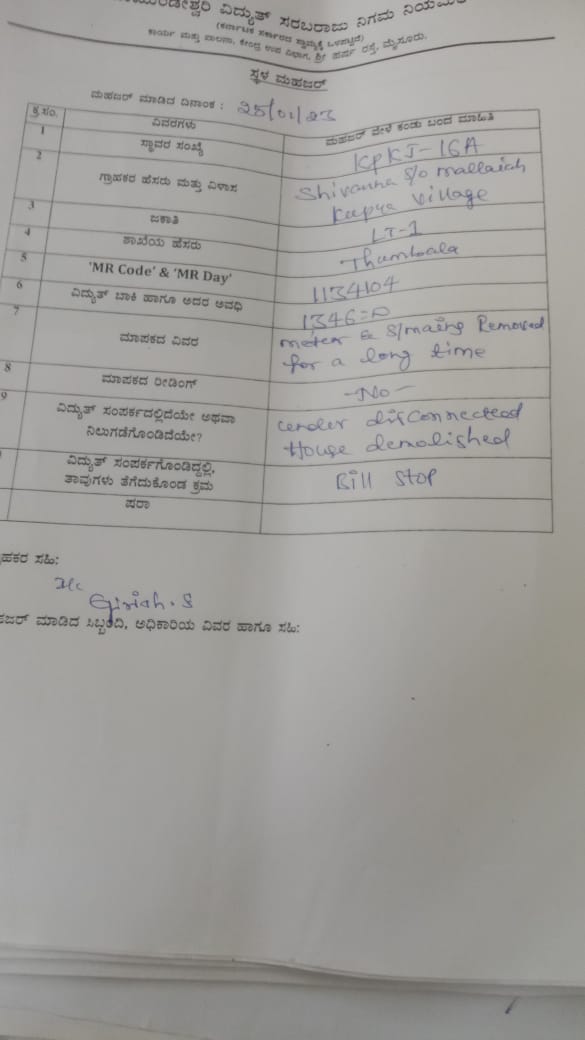 ವಿದ್ಯುತ್ ಸರಬರಾಜು ನಿಗಮ
(ಕರ್ನಾಟಕ ಸರ್ಕಾರದ ಸ್ವಾಮ್ಯಕ್ಕೆ ಒಳಪಟ್ಟಿದೆ)
ಕಾರ್ಯ ಮತ್ತು ಪಾಲನಾ, ಕೇಂದ್ರ ಉಪ ವಿಭಾಗ, ಶ್ರೀ ಹರ್ಷ ರಸ್ತೆ, ಮೈಸೂರು.
ಸ್ಥಳ ಮಹಜರ್
ಮಹಜರ್ ಮಾಡಿದ ದಿನಾಂಕ : 25/01/23
ಕ್ರ.ಸಂ. ವಿವರಗಳು ಮಹಜರ್ ವೇಳೆ ಕಂಡು ಬಂದ ಮಾಹಿತಿ
1 ಸ್ಥಾವರ ಸಂಖ್ಯೆ KPKJ-16A
2 ಗ್ರಾಹಕರ ಹೆಸರು ಮತ್ತು ವಿಳಾಸ Shivanna S/o mallaiah
Kupya Village
3 ಜಕಾತಿ LT-1
4 ಶಾಖೆಯ ಹೆಸರು Thumbala
5 'MR Code' & 'MR Day' 1134104
6 ವಿದ್ಯುತ್ ಬಾಕಿ ಹಾಗೂ ಅದರ ಅವಧಿ 1346=0
7 ಮಾಪಕದ ವಿವರ meter & S/mains Removed
for a long time
8 ಮಾಪಕದ ರೀಡಿಂಗ್ -No-
9 ವಿದ್ಯುತ್ ಸಂಪರ್ಕದಲ್ಲಿದೆಯೇ ಅಥವಾ
ನಿಲುಗಡೆಗೊಂಡಿದೆಯೇ? under disconnected
House demolished
ವಿದ್ಯುತ್ ಸಂಪರ್ಕಗೊಂಡಿದ್ದಲ್ಲಿ,
ತಾವುಗಳು ತೆಗೆದುಕೊಂಡ ಕ್ರಮ Bill Stop
ಷರಾ
ಸಹಿ:
Girish.S
ಮಾಡಿದ ಸಿಬ್ಬಂದಿ, ಅಧಿಕಾರಿಯ ವಿವರ ಹಾಗೂ ಸಹಿ: